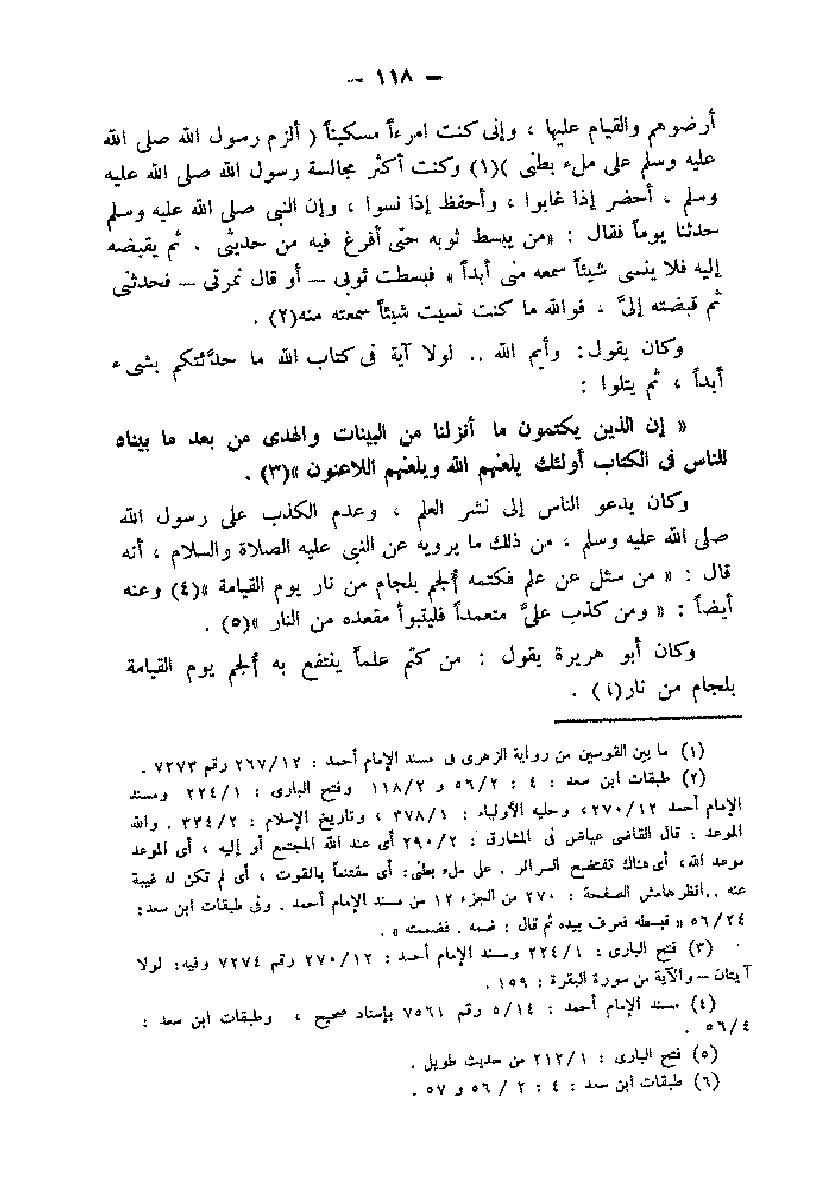 – ١١٨ –
أرضوهم والقيام عليها ، وإنى كنت امرءاً مسكيناً ( ألزم رسول الله صلى الله
عليه وسلم على ملء بطنى )(١) وكنت أكثر مجالسة رسول الله صلى الله عليه
وسلم ، أحضر إذا غابوا ، وأحفظ إذا نسوا ، وإن النبى صلى الله عليه وسلم
حدثنا يوماً فقال : «من يبسط ثوبه حتى أفرغ فيه من حديثى . ثم يقبضه
إليه فلا ينسى شيئاً سمعه منى أبداً » فبسطت ثوبى – أو قال نمرتى – فحدثنى
ثم قبضته إلىَّ ، فوالله ما كنت نسيت شيئاً سمعته منه(٢) .
وكان يقول : وأيم الله .. لولا آية فى كتاب الله ما حدَّثتكم بشىء
أبداً ، ثم يتلوا :
« إن الذين يكتمون ما أنزلنا من البينات والهدى من بعد ما بيناه
للناس فى الكتاب أولئك يلعنهم الله ويلعنهم اللاعنون »(٣) .
وكان يدعو الناس إلى نشر العلم ، وعدم الكذب على رسول الله
صلى الله عليه وسلم ، من ذلك ما يرويه عن النبى عليه الصلاة والسلام ، أنه
قال : « من سئل عن علم فكتمه أُلجم بلجام من نار يوم القيامة »(٤) وعنه
أيضاً : « ومن كذب علىَّ متعمداً فليتبوأ مقعده من النار »(٥) .
وكان أبو هريرة يقول : من كتم علماً ينتفع به أُلجم يوم القيامة
بلجام من نار(٦) .
(١) ما بين القوسين من رواية الزهرى فى مسند الإمام أحمد : ٢٦٧/١٢ رقم ٧٢٧٣ .
(٢) طبقات ابن سعد : ٤ : ٥٦/٢ و ١١٨/٢ وفتح البارى : ٢٢٤/١ ومسند
الإمام أحمد ٢٧٠/١٢، وحلية الأولياء : ٣٧٨/١ ، وتاريخ الإسلام : ٣٣٤/٢ . والله
الموعد : قال القاضى عياض فى المشارق : ٢٩٠/٢ أى عند الله المجتمع أو إليه ، أى الموعد
موعد الله، أى هناك تفتضح السرائر . على ملء بطنى: أى مقتنعاً بالقوت ، أى لم تكن له غيبة
عنه .. انظر هامش الصفحة : ٢٧٠ من الجزء ١٢ من مسند الإمام أحمد . وفى طبقات ابن سعد:
٥٦/٢٤ « فبسطه فغرف بيده ثم قال : ضمه . فضممته » .
(٣) فتح البارى : ٢٢٤/١ ومسند الإمام أحمد : ٢٧٠/١٢ رقم ٧٢٧٤ وفيه: لولا
آيتان – والآية من سورة البقرة : ١٥٩ .
(٤) مسند الإمام أحمد : ٥/١٤ رقم ٧٥٦١ بإسناد صحيح ، وطبقات ابن سعد :
٥٦/٤ .
(٥) فتح البارى : ٢١٢/١ من حديث طويل .
(٦) طبقات ابن سعد : ٤ : ٢ / ٥٦ و ٥٧ .